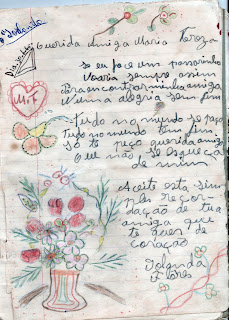 Yolanda
Dia 12
Querida Amiga Maria Tereza
M.T
Se eu fosse um passarinho
Voaria sempre assim
Para encontrar minha amiga
N'uma alegria sem fim
Tudo no mundo se
Tudo no mundo tem fim
só te peço querida amiga
Que não se esqueça
de mim
Aceite esta sim
ples recor
dação de tua
amiga que
te quer de
coração
Iolanda
Flores